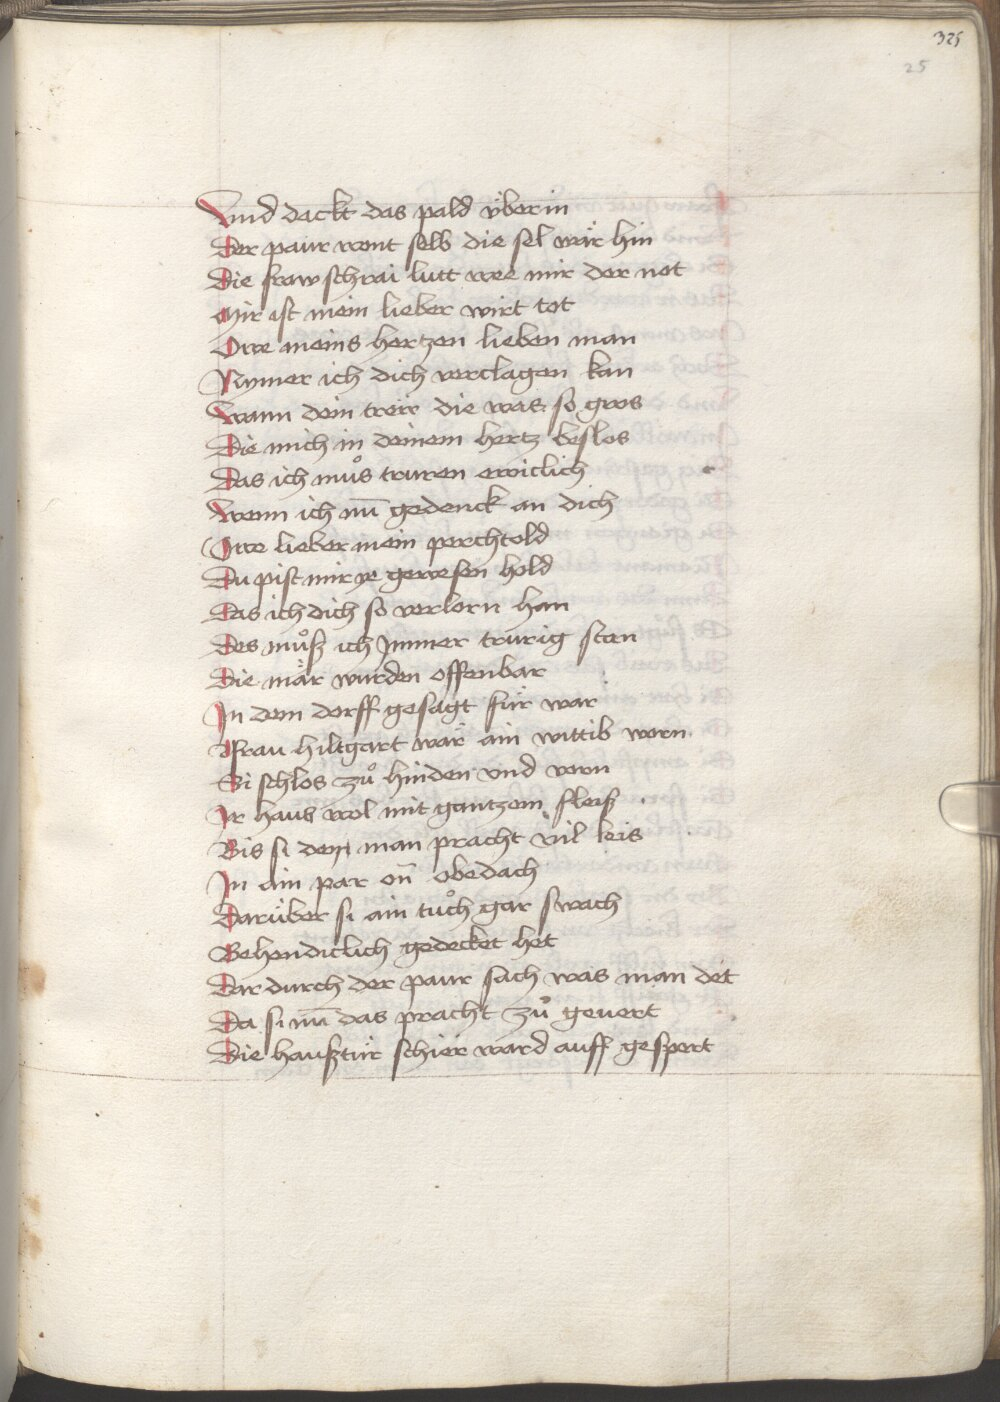 325
25
Vnd dackt das pald v̈ber in
Der paur wont selb die sel wär hin
Die fraw schrai lutt wee mir der not
Mir ist mein lieber wirt tot
Owe meins hertzen lieben man
Nymer ich dich verclagen kan
Wann dein trew die was so gros
Die mich in deinem hertz beslos
Das ich muͦs truren ewiclich
Wenn ich nū gedenck an dich
Owe lieber mein perchtold
Du pist mir ye gewesen hold
Das ich dich so verlorn han
Des muͦß ich Jmmer trurig stan
Die mär wurden offenbar
Jn dem dorff gesagt für war
Frau hiltgart wär ain wittib worn
Si schlos zuͦ hinden vnd vorn
Jr haus wol mit gantzem fleiß
Bis si den man pracht vil leis
Jn ain par on̄ obedach
Darüber si ain tuͦch gar swach
Behendiclich gedecket het
Dar durch der paur sach was man det
Da si nū das pracht zuͦ geuert
Die haußtür schier ward auff gespert